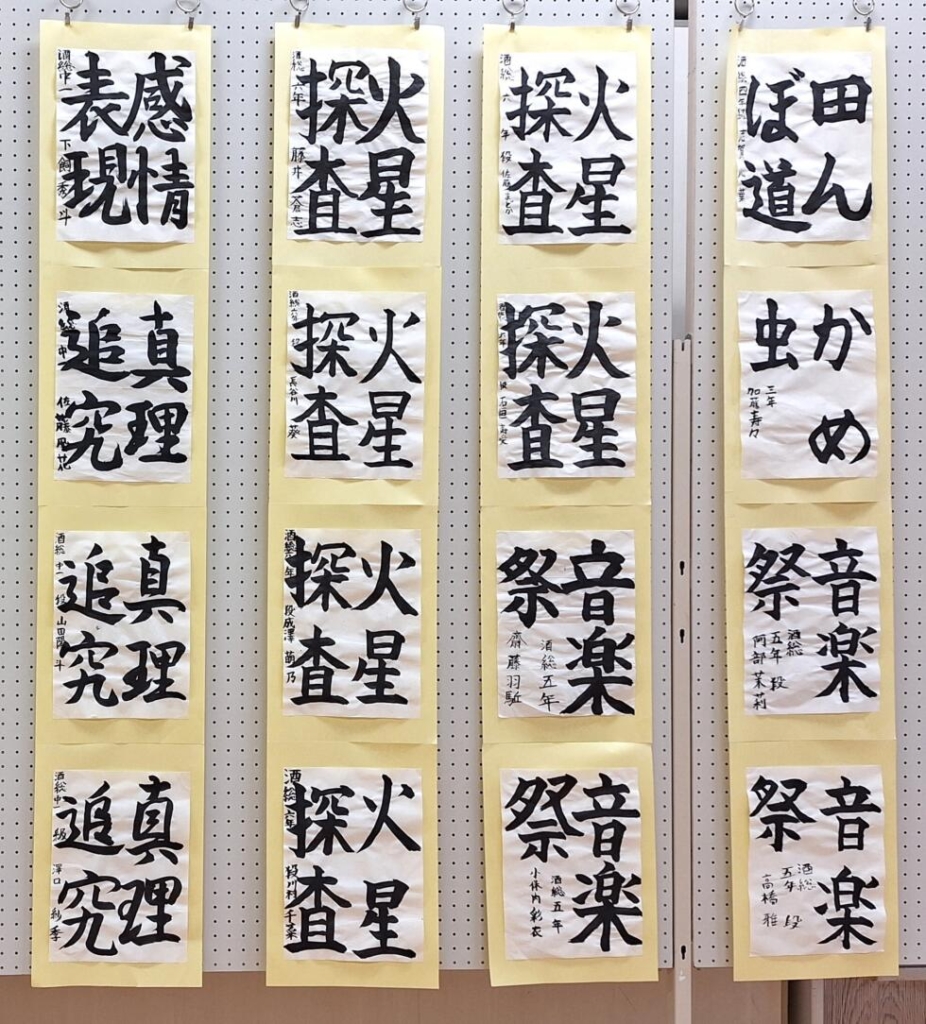 田ん
ぼ道
かめ
虫
三年
加藤寿々
音楽
祭
酒総
五年 段
阿部茉莉
音楽
祭
酒総
五年 段
高橋 雅
火星
探査
酒総 六年 段
火星
探査
音楽
祭
酒総五年
齋藤羽
音楽
祭
酒総五年
小保内彩衣
火星
探査
酒総 六年
藤井
火星
探査
酒総六年 段
長谷川 葵
火星
探査
段 成澤 萌乃
火星
探査
酒総 六年
段 川村 千菜
感情
表現
酒総中一
真理
追究
酒総 中一
佐藤 風花
真理
追究
酒総 中一 段 山田陽斗
真理
追究
酒総中一 級 澤口